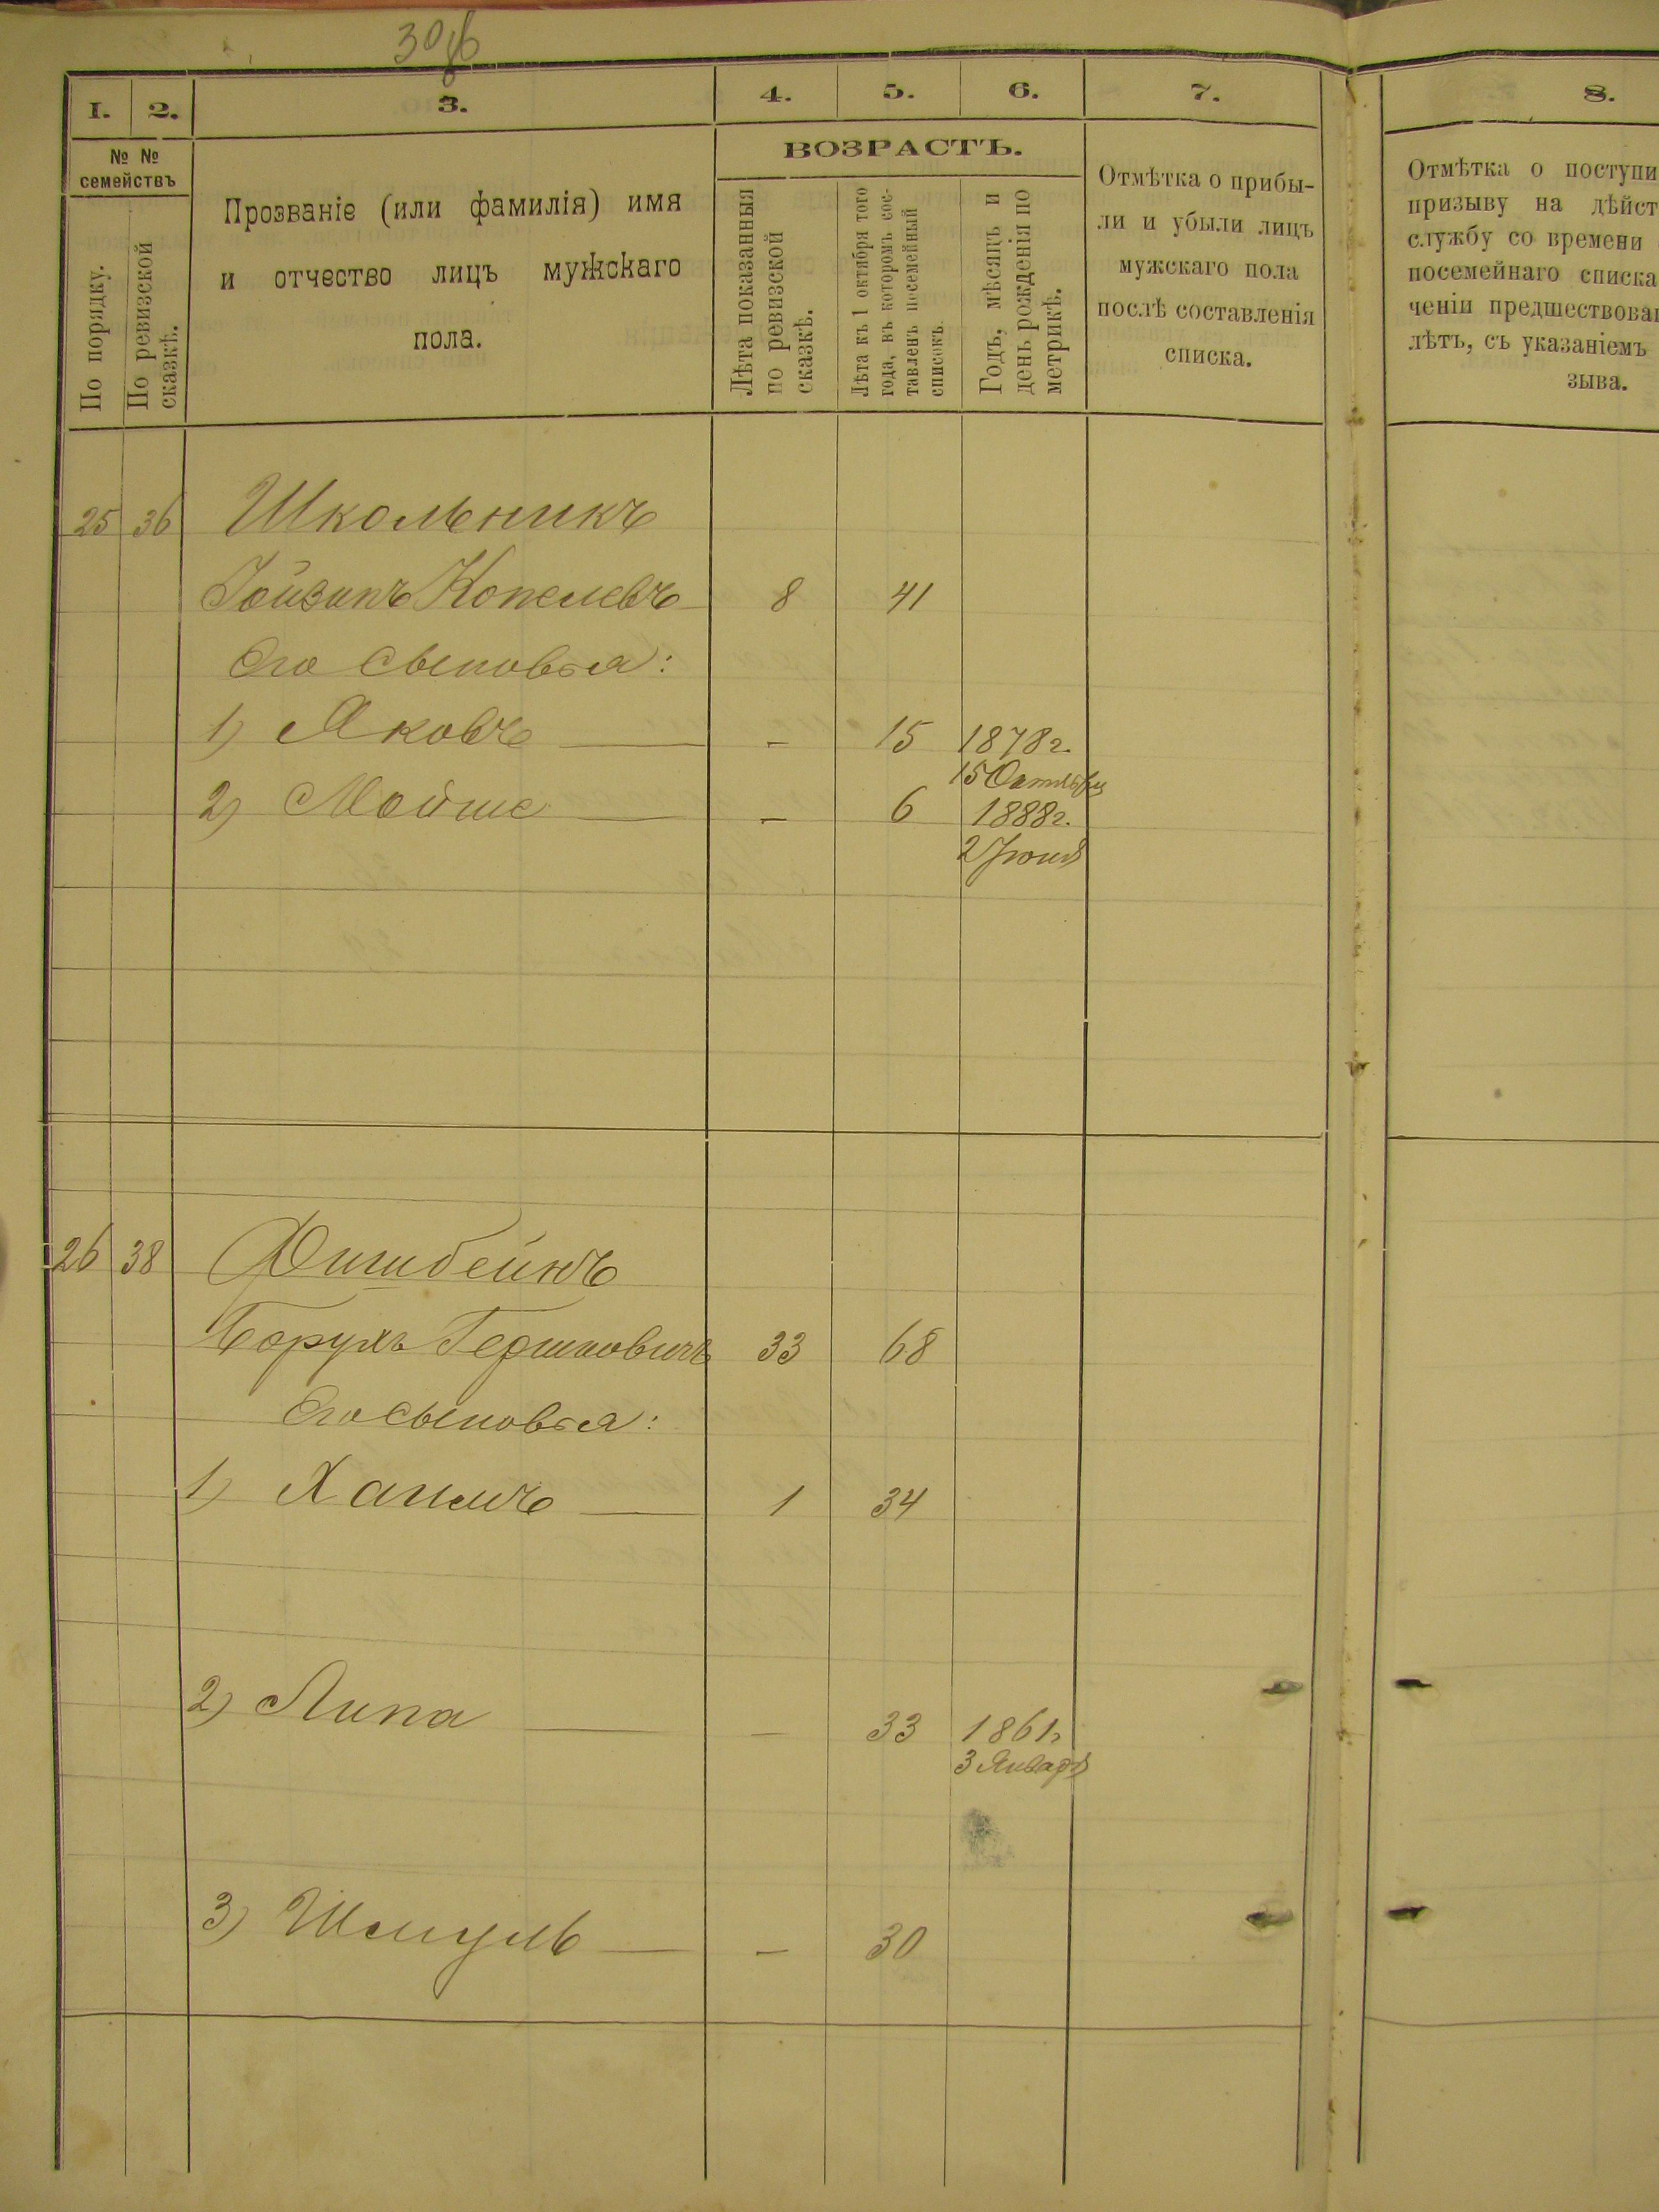 30
1. 2. 3. 4. 5. 6. 7. 8.
№ №
семействъ
По порядку.
По ревизской
сказкѣ.
Прозваніе (или фамилія) имя
и отчество лицъ мужскаго
пола.
ВОЗРАСТЪ.
Лѣта показанныя
по ревизской
сказкѣ.
Лѣта къ 1 октября того
года, въ которомъ сос-
тавленъ посемейный
списокъ.
Годъ, мѣсяцъ и
день рожденія по
метрикѣ.
Отмѣтка о прибы-
ли и убыли лицъ
мужскаго пола
послѣ составленія
списка.
Отмѣтка о поступи
призыву на дѣйст
службу со времени
посемейнаго списка
ченіи предшествова
лѣтъ, съ указаніемъ
зыва.
25 36 Школьникъ
Копелевъ 8 41
Его сыновья:
1) Яковъ — - 15 1878 г.
15 Октября
2) Мойше — - 6 1888 г.
2 Іюня
26 38 Фишбейнъ
Борухъ Гершковичъ 33 68
Его сыновья:
1) Хаимъ — 1 34
2) Липа — - 33 1861 г
3 Января
3) Шмуль — - 30